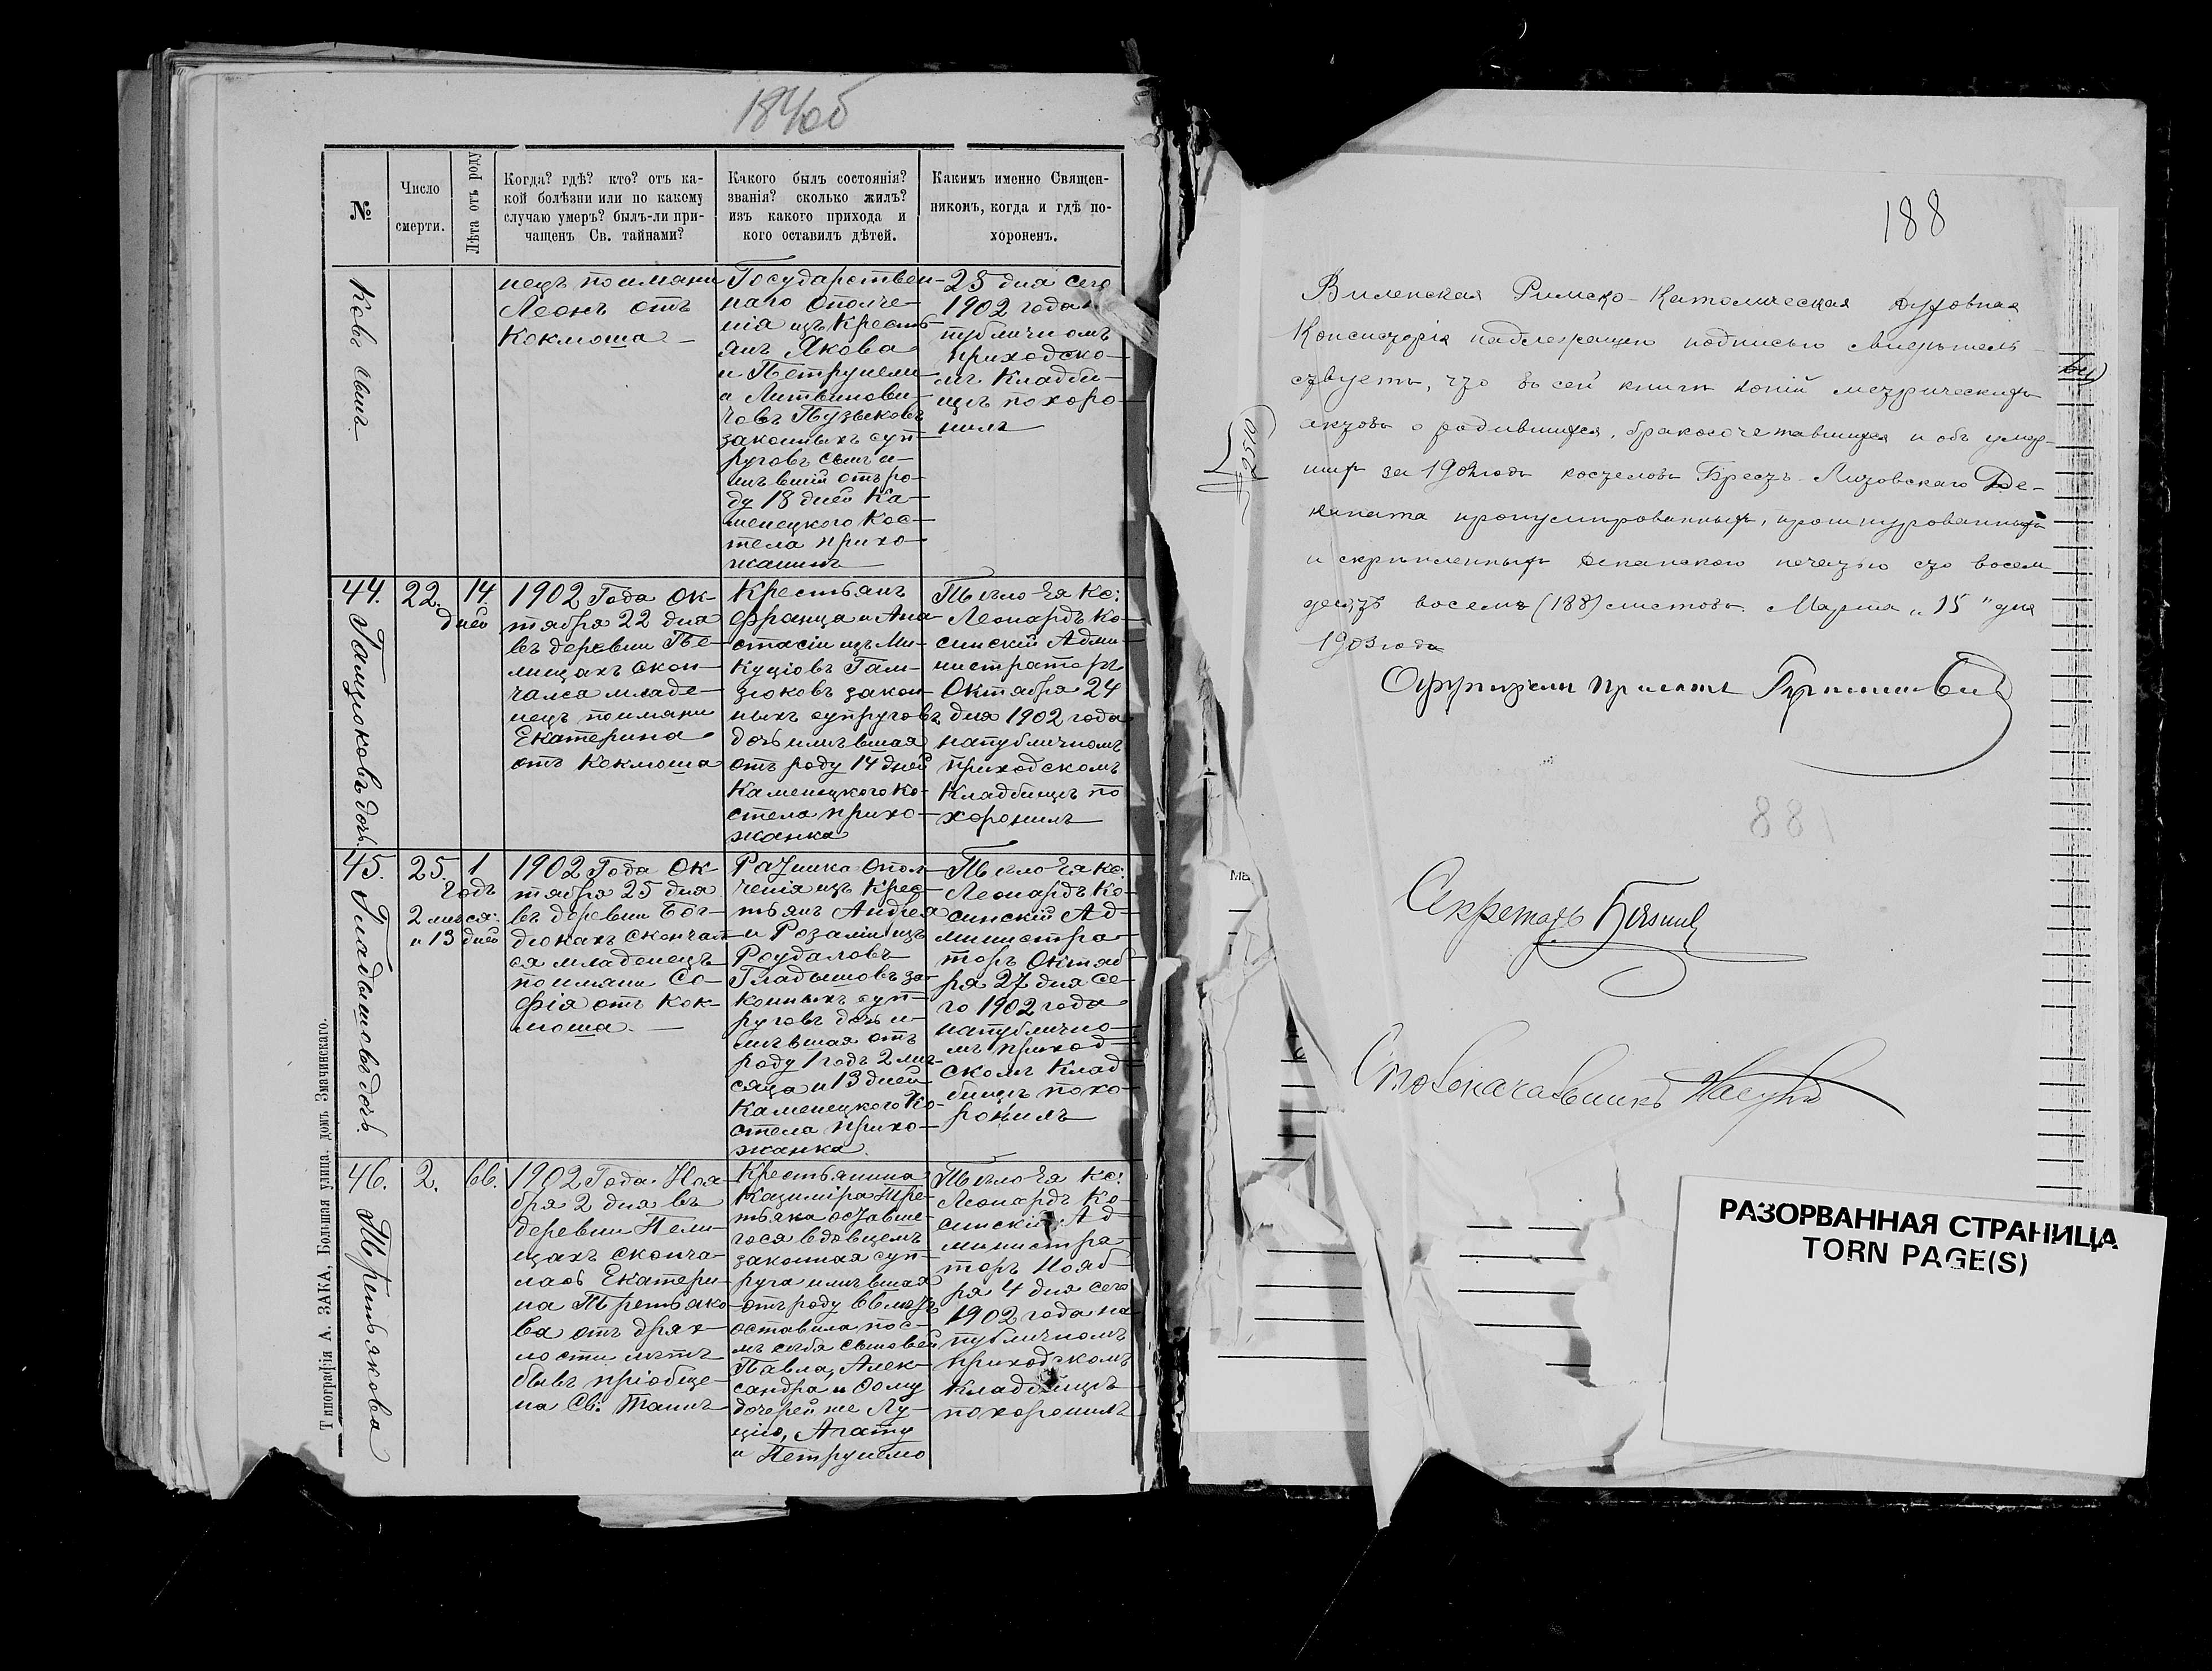 184об
№
Число
смерти.
Лѣта отъ роду
Когда? гдѣ? кто? отъ ка-
кой болѣзни или по какому
случаю умеръ? былъ-ли при-
чащенъ Св. тайнами?
Какого былъ состоянія?
званія? сколько жилъ?
изъ какого прихода и
кого оставилъ дѣтей.
Какимъ именно Священ-
никомъ, когда и гдѣ по-
хороненъ.
ковъ сынъ
нецъ поимяни
Леонъ отъ
Коклюша
Государствен-
наго Ополче-
нія изъ Кресть-
янъ Якова
и Петрунели
Литвинови-
човъ Пузыковъ
законныхъ суп-
руговъ сынъ и-
мѣвшій отъ ро-
ду 18 дней Ка-
менецкого Кос-
тела прихо-
жанинъ
25 дня сего
1902 года
публичномъ
приходско-
мъ Кладби-
щѣ похоро-
нилъ
44.
Ганцюковъ дочь.
22.
14
дней
1902 Года Ок-
тября 22 дня
въ деревни Пе-
лищахъ скон-
чался младе-
нецъ поимяни
Екатерина
отъ Коклюша
Крестьянъ
Франца и Ана-
стасіи изъ Ми-
куціовъ Ган-
цюковъ закон-
ныхъ супруговъ
дочь имѣвшая
отъ роду 14 дней
Каменецкого Ко-
стела прихо-
жанка
Тѣло Ея Кс:
Леонардъ Ко-
синскій Адми-
нистраторъ
Октября 24
дня 1902 года
напубличномъ
приходскомъ
Кладбищѣ по
хоронилъ
45.
Гладышовъ дочь.
25.
1
годъ
2 мѣся:
и 13 дней
1902 Года Ок-
тября 25 дня
въ деревни Бог-
дюкахъ скончал-
ся младенецъ
поимяни Со-
фія отъ Кок-
люша.
Ратника Опол-
ченія изъ Крес-
тьянъ Андрея
и Розаліи изъ
Роудаловъ
Гладышовъ за-
конныхъ суп-
руговъ дочь и-
мѣвшая отъ
роду 1 годъ 2 мѣ-
сяца и 13 дней
Каменецкого Ко-
стела прихо-
жанка.
Тѣло Ея Кс:
Леонардъ Ко-
синскій Ад-
министра-
торъ Октяб
ря 27 дня се-
го 1902 года
напублично-
мъ приход-
скомъ Клад
бищѣ похо-
ронилъ
46.
Третьякова
2.
66.
1902 Года Ноя-
бря 2 дня въ
деревни Пели-
щахъ сконча-
лась Екатери-
на Третьяко-
ва отъ дрях-
лости лѣтъ
бывъ пріобще-
на Св. Таинъ
Крестьянина
Казиміра Тре-
тьяка оставше-
гося вдовцемъ
законная суп-
руга имѣвшая
отъ роду 66 лѣтъ
оставила пос-
лѣ себя сыновей
Павла, Алек-
сандра и Фому
дочерей же Лу-
цію, Агату
и Петрунелю
Тѣло Ея Кс:
Леонардъ Ко-
синскій Ад-
министра-
торъ Нояб
ря 4 дня сего
1902 года на
публичномъ
приходскомъ
Кладбищѣ
похоронилъ
Типографія А. ЗАКА, Большая улица, домъ Змачинскаго.
188
Виленская Римско-Католическая Духовная
Консисторія надлежащею подписью свидѣтель-
ствуетъ, что въ сей книгѣ копій метрическихъ
актовъ о родившихся, бракосочетавшихся и объ умер-
шихъ за 1902 годъ костеловъ Брестъ-Литовскаго Де-
каната пронумированныхъ, прошнурованныхъ
и скрѣпленныхъ деканскою печатью сто восем
десятъ восемь (188) листовъ. Марта „15" дня
1903 года
Оффиціалъ Прелатъ
Секретарь
Столоначальникъ
РАЗОРВАННАЯ СТРАНИЦА
TORN PAGE(S)